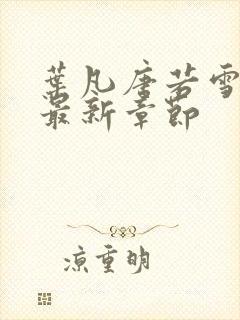 葉凡唐若雪
最新章節
涼重明